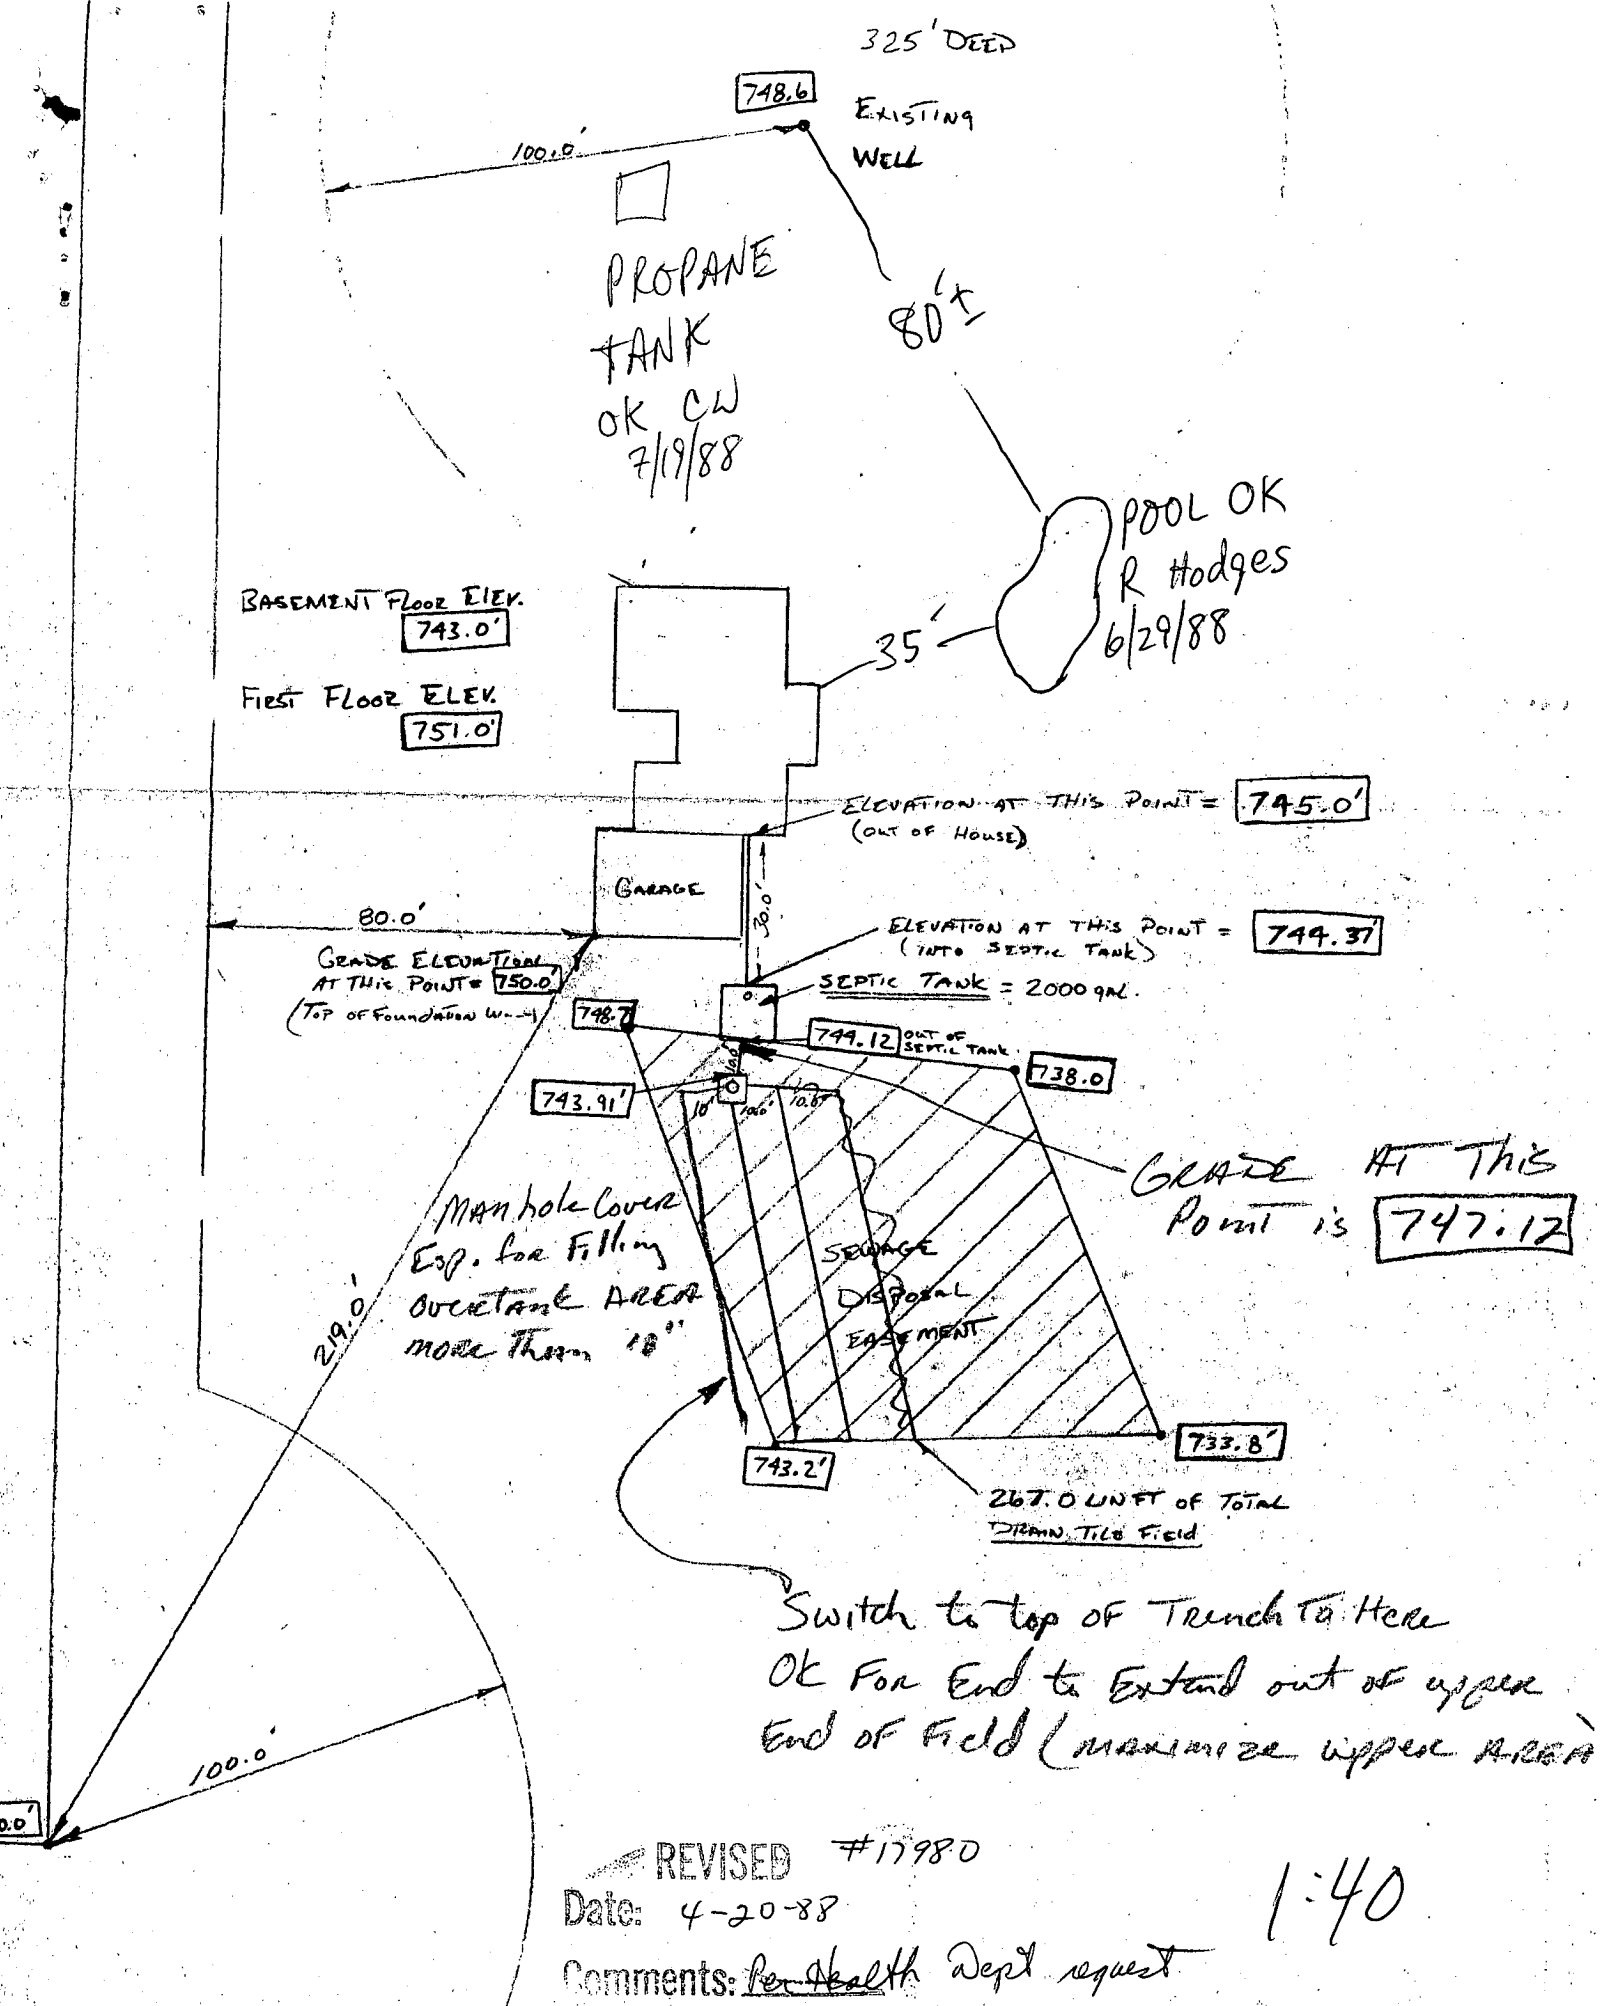 325' DEEP
748.6
EXISTING
WELL
100.0'
PROPANE
TANK
OK CW
7/19/88
80'±
POOL OK
R Hodges
6/29/88
35'
BASEMENT FLOOR ELEV.
743.0'
FIRST FLOOR ELEV.
751.0'
ELEVATION AT THIS POINT = 745.0'
(OUT OF HOUSE)
GARAGE
30.0'
80.0'
ELEVATION AT THIS POINT = 744.37'
(INTO SEPTIC TANK)
GRADE ELEVATION
AT THIS POINT = 750.0'
(TOP OF FOUNDATION
SEPTIC TANK = 2000 gal.
748.7
744.12 OUT OF
SEPTIC TANK
738.0
743.91'
10' 10.0' 10.0'
GRADE AT This
Point is 747.12
Manhole Cover
Esp. for Filling
OVER TANK AREA
more Than 18"
SEWAGE
DISPOSAL
EASEMENT
219.0'
733.8'
743.2'
267.0 LIN FT OF TOTAL
DRAIN TILE FIELD
Switch to top OF Trench To Here
OK For End to Extend out OF upper
End OF Field (MAXIMIZE upper AREA
100.0'
0.0'
REVISED #17980
Date: 4-20-88
1:40
Comments: Per Health Dept request